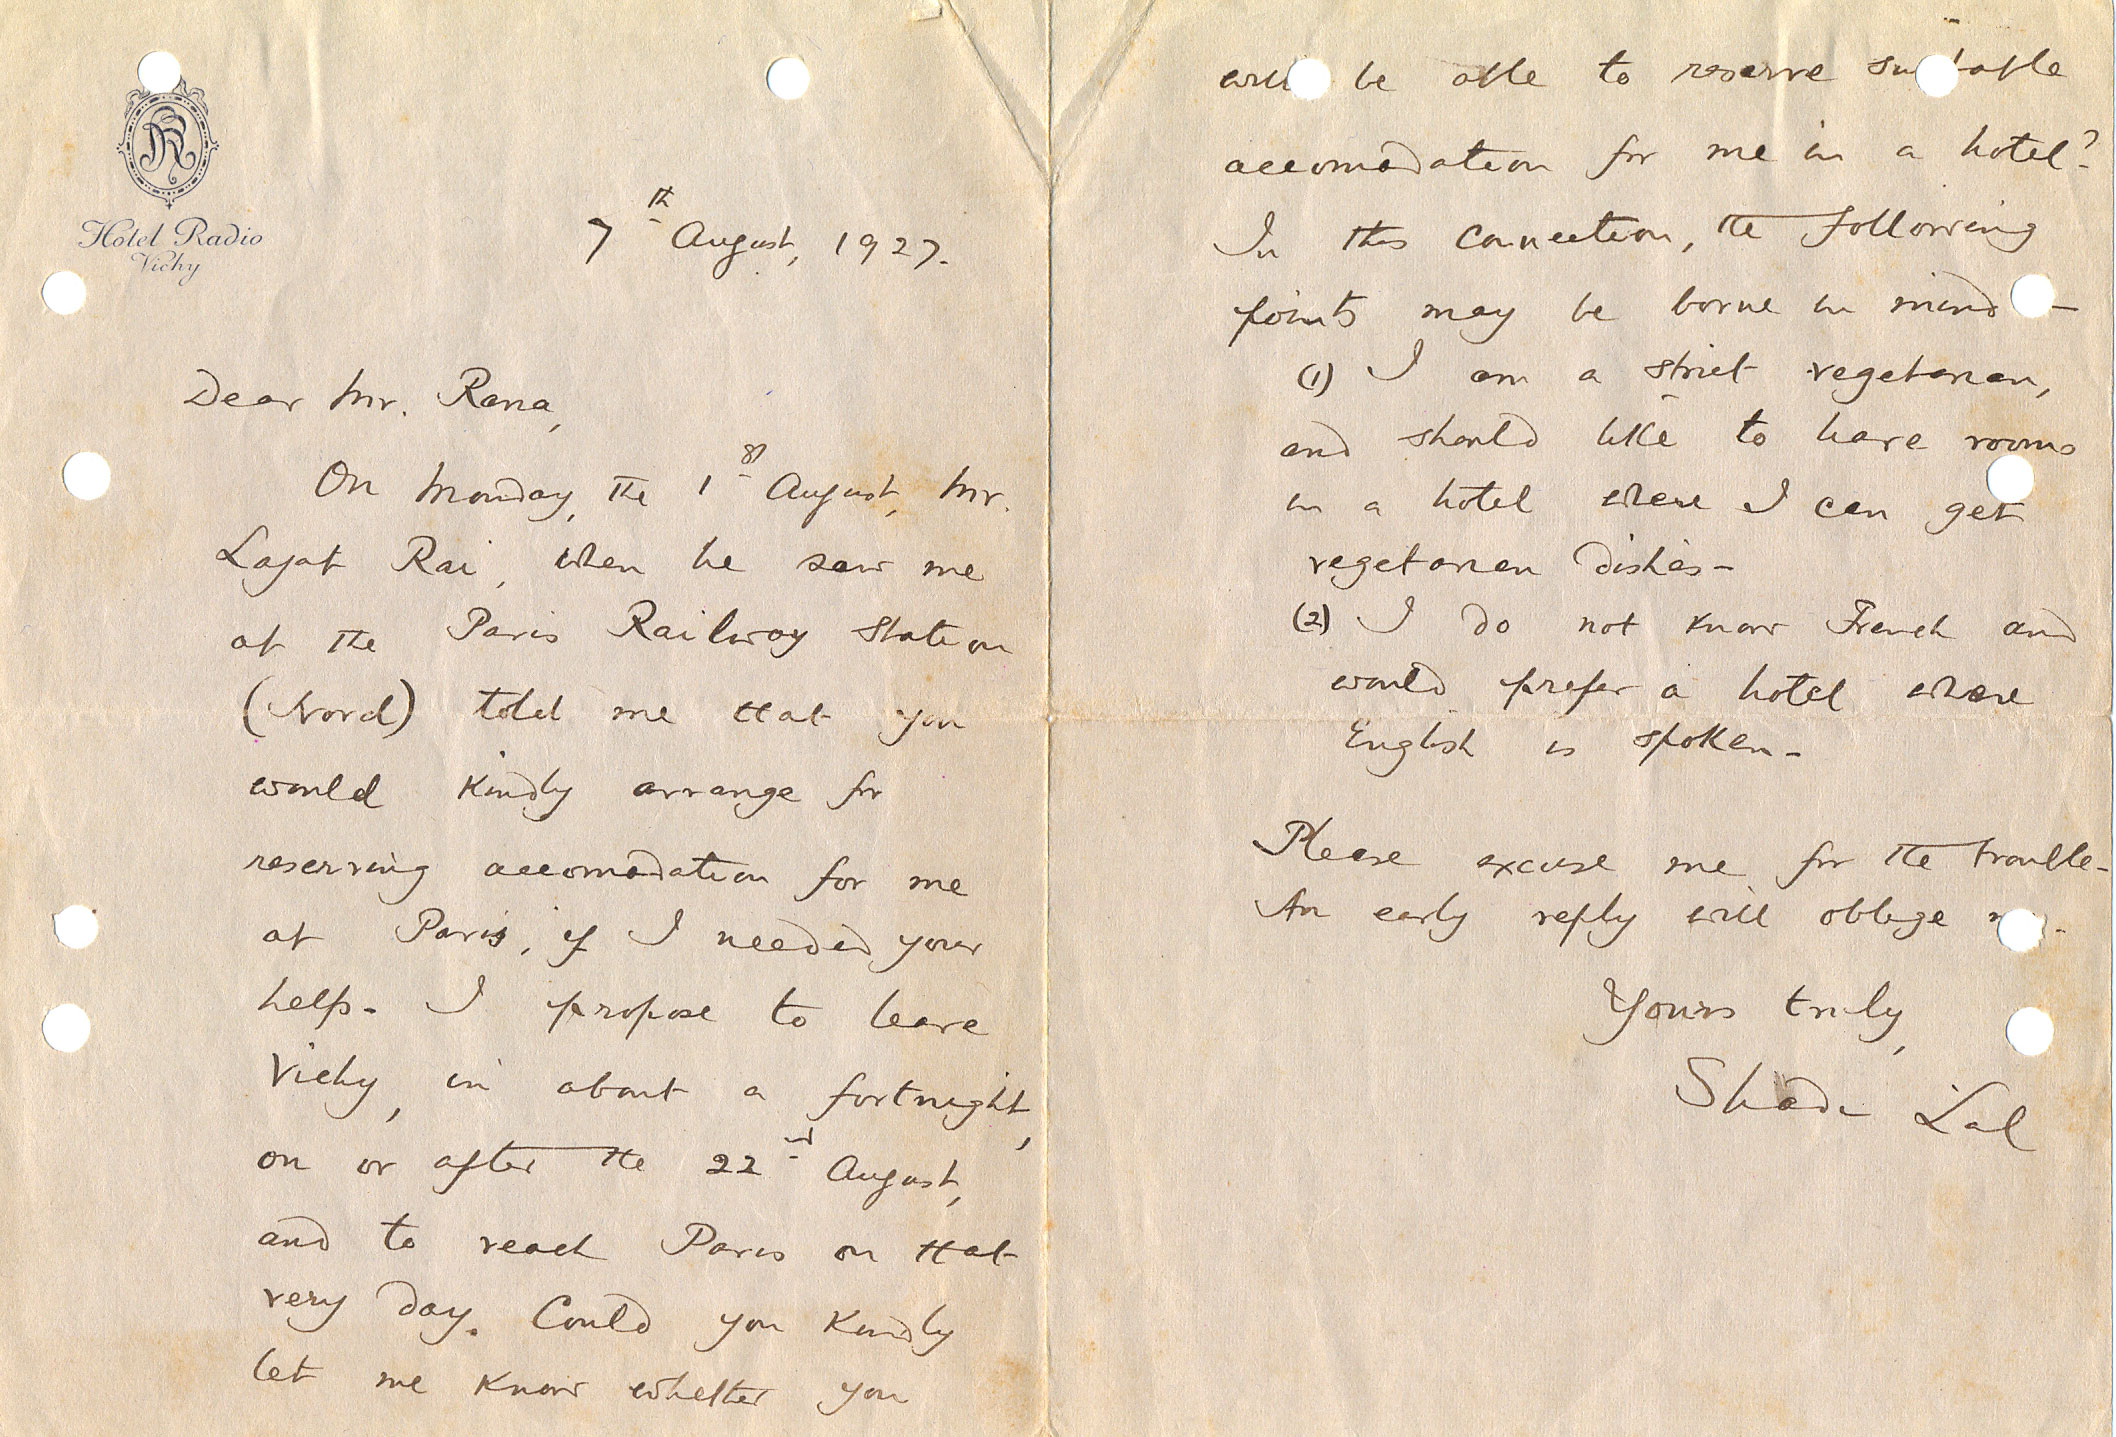 Hotel Radio
Vichy
7th August, 1927.
Dear Mr. Rana,
On Monday, the 1st August, Mr.
Lajat Rai, when he saw me
at the Paris Railway Station
(Nord) told me that you
would kindly arrange for
reserving accomodation for me
at Paris, if I needed your
help. I propose to leave
Vichy, in about a fortnight,
on or after the 22nd August,
and to reach Paris on that
very day. Could you kindly
let me know whether you
will be able to reserve suitable
accomodation for me in a hotel?
In this connection, the following
points may be borne in mind —
(1) I am a strict vegetarian,
and should like to have rooms
in a hotel where I can get
vegetarian dishes -
(2) I do not know French and
would prefer a hotel where
English is spoken -
Please excuse me for the trouble -
An early reply will oblige me.
Yours truly,
Shadi Lal